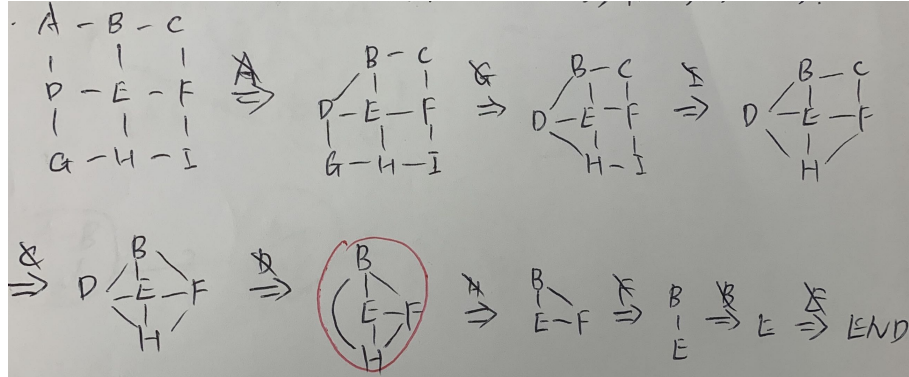 A - B - C
D - E - F
G - H - I
A
⇒
B - C
D - E - F
G - H - I
G
⇒
B - C
D - E - F
H - I
I
⇒
B - C
D - E - F
H
C
⇒
B
D - E - F
H
D
⇒
B
E - F
H
H
⇒
B
E - F
F
⇒
B
E
B
⇒ E
E
⇒ END